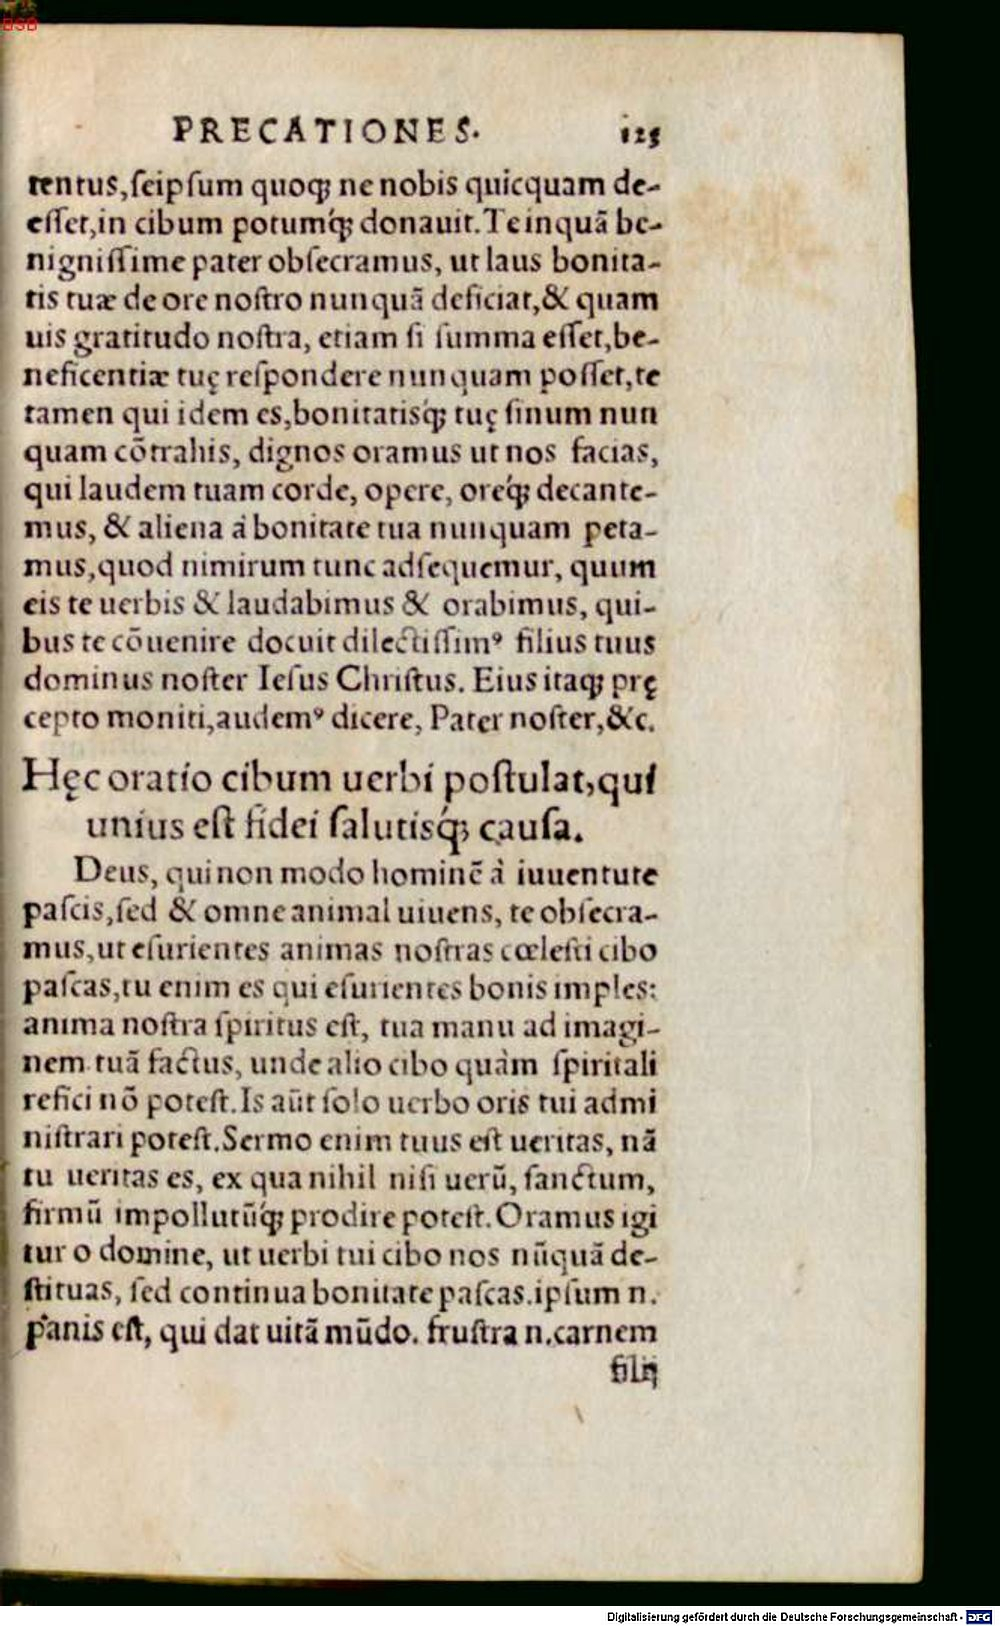 BSB
PRECATIONES. 125
tentus, ſeipſum quoq; ne nobis quicquam de-
eſſet, in cibum potumq́; donauit. Te inquã be-
nigniſſime pater obſecramus, ut laus bonita-
tis tuæ de ore noſtro nunquã deficiat, & quam
uis gratitudo noſtra, etiam ſi ſumma eſſet, be-
neficentiæ tuę reſpondere nunquam poſſet, te
tamen qui idem es, bonitatisq́; tuę ſinum nun
quam cõtrahis, dignos oramus ut nos facias,
qui laudem tuam corde, opere, oreq́; decante-
mus, & aliena à bonitate tua nunquam peta-
mus, quod nimirum tunc adſequemur, quum
eis te uerbis & laudabimus & orabimus, qui-
bus te cõuenire docuit dilectiſſimꝰ filius tuus
dominus noſter Ieſus Chriſtus. Eius itaq; prę
cepto moniti, audemꝰ dicere, Pater noſter, &c.
Hęc oratio cibum uerbi poſtulat, qui
unius eſt fidei ſalutisq́; cauſa.
Deus, qui non modo hominẽ à iuuentute
paſcis, ſed & omne animal uiuens, te obſecra-
mus, ut eſurientes animas noſtras cœleſti cibo
paſcas, tu enim es qui eſurientes bonis imples:
anima noſtra ſpiritus eſt, tua manu ad imagi-
nem tuã factus, unde alio cibo quàm ſpiritali
refici nõ poteſt. Is aũt ſolo uerbo oris tui admi
niſtrari poteſt. Sermo enim tuus eſt ueritas, nã
tu ueritas es, ex qua nihil niſi uerũ, ſanctum,
firmũ impollutũq́; prodire poteſt. Oramus igi
tur o domine, ut uerbi tui cibo nos nũquã de-
ſtituas, ſed continua bonitate paſcas. ipſum n.
panis eſt, qui dat uitã mũdo. fruſtra n. carnem
filij
Digitalisierung gefördert durch die Deutsche Forschungsgemeinschaft - DFG